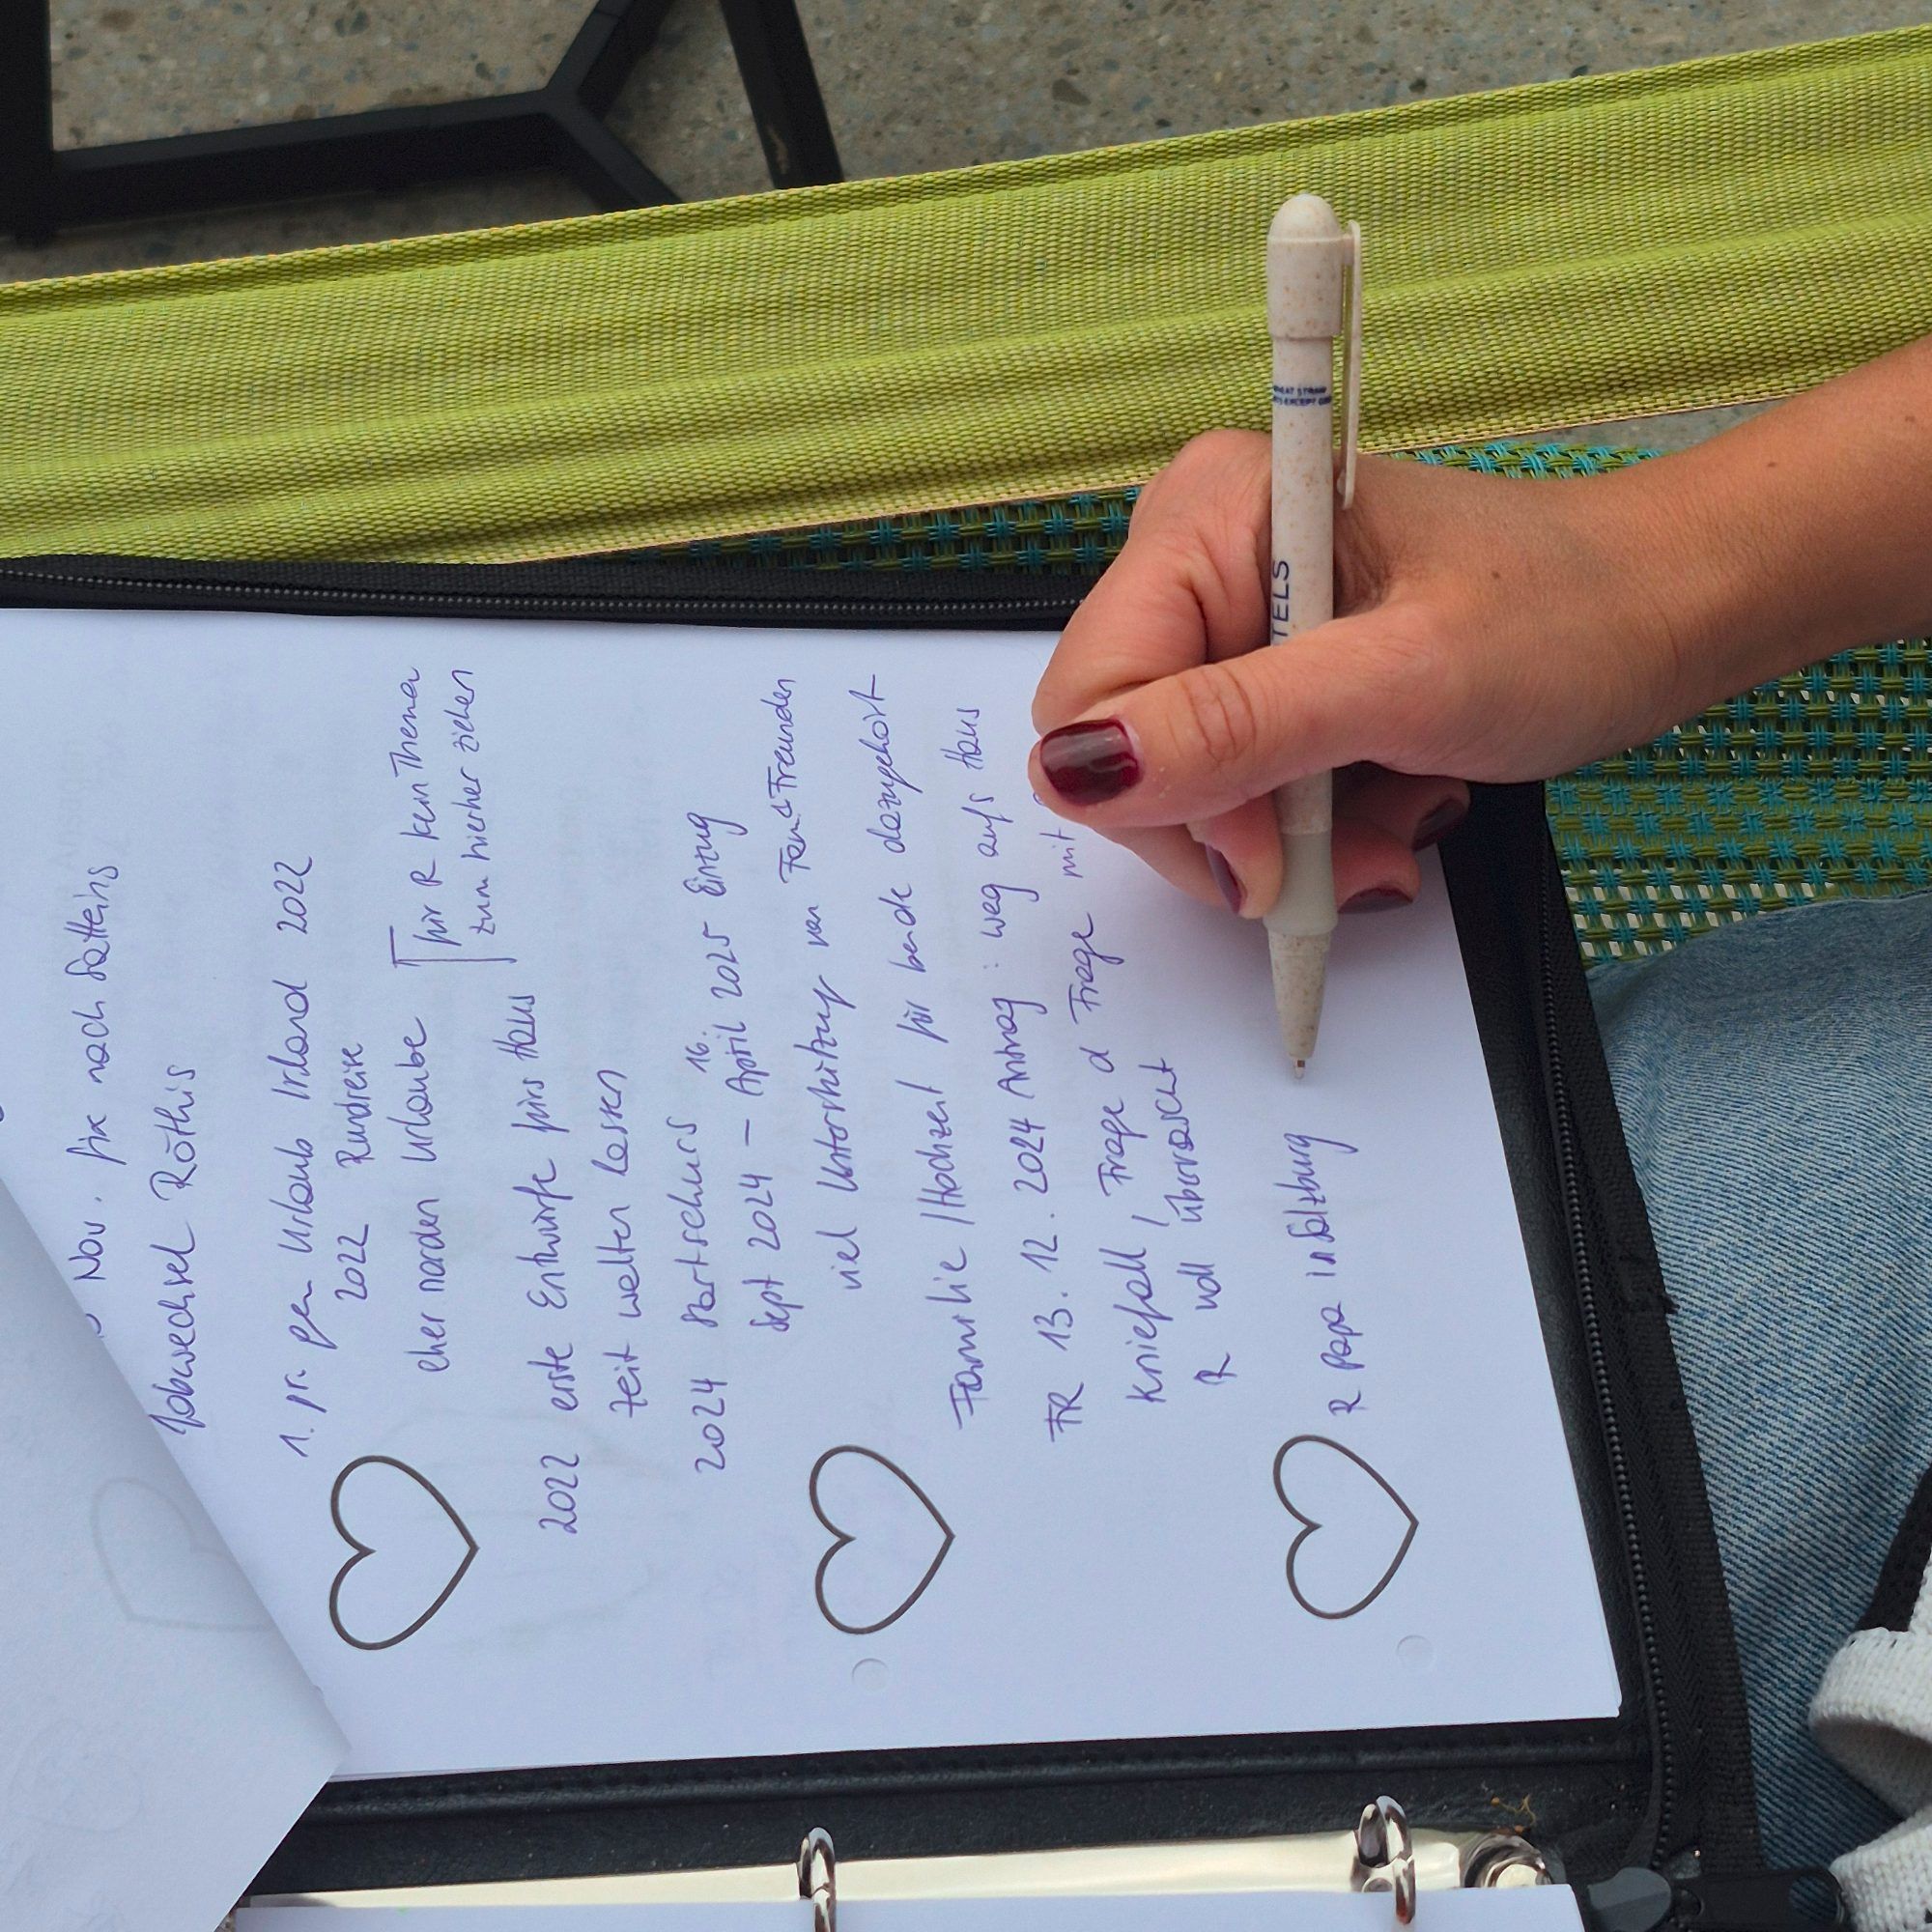 Nov. fix nach Satteins
Jobwechsel Röthis
1. pr. gem Urlaub Irland 2022
2022 Rundreise
eher norden Urlaube
für R kein Thema
zum hierher ziehen
2022 erste Entwürfe fürs Haus
Zeit welten lassen
2024 Startschuss
Sept 2024 – 16. April 2025 Einzug
viel Unterstützung von Fam & Freunden
Familie / Hochzeit für beide dazugehört
FR 13. 12. 2024 Antrag : weg aufs Haus
Kniefall / Frage d Frage mit
R voll überrascht
R Papa in Salzburg
TELS
WHEAT STRAW
EXCEPT